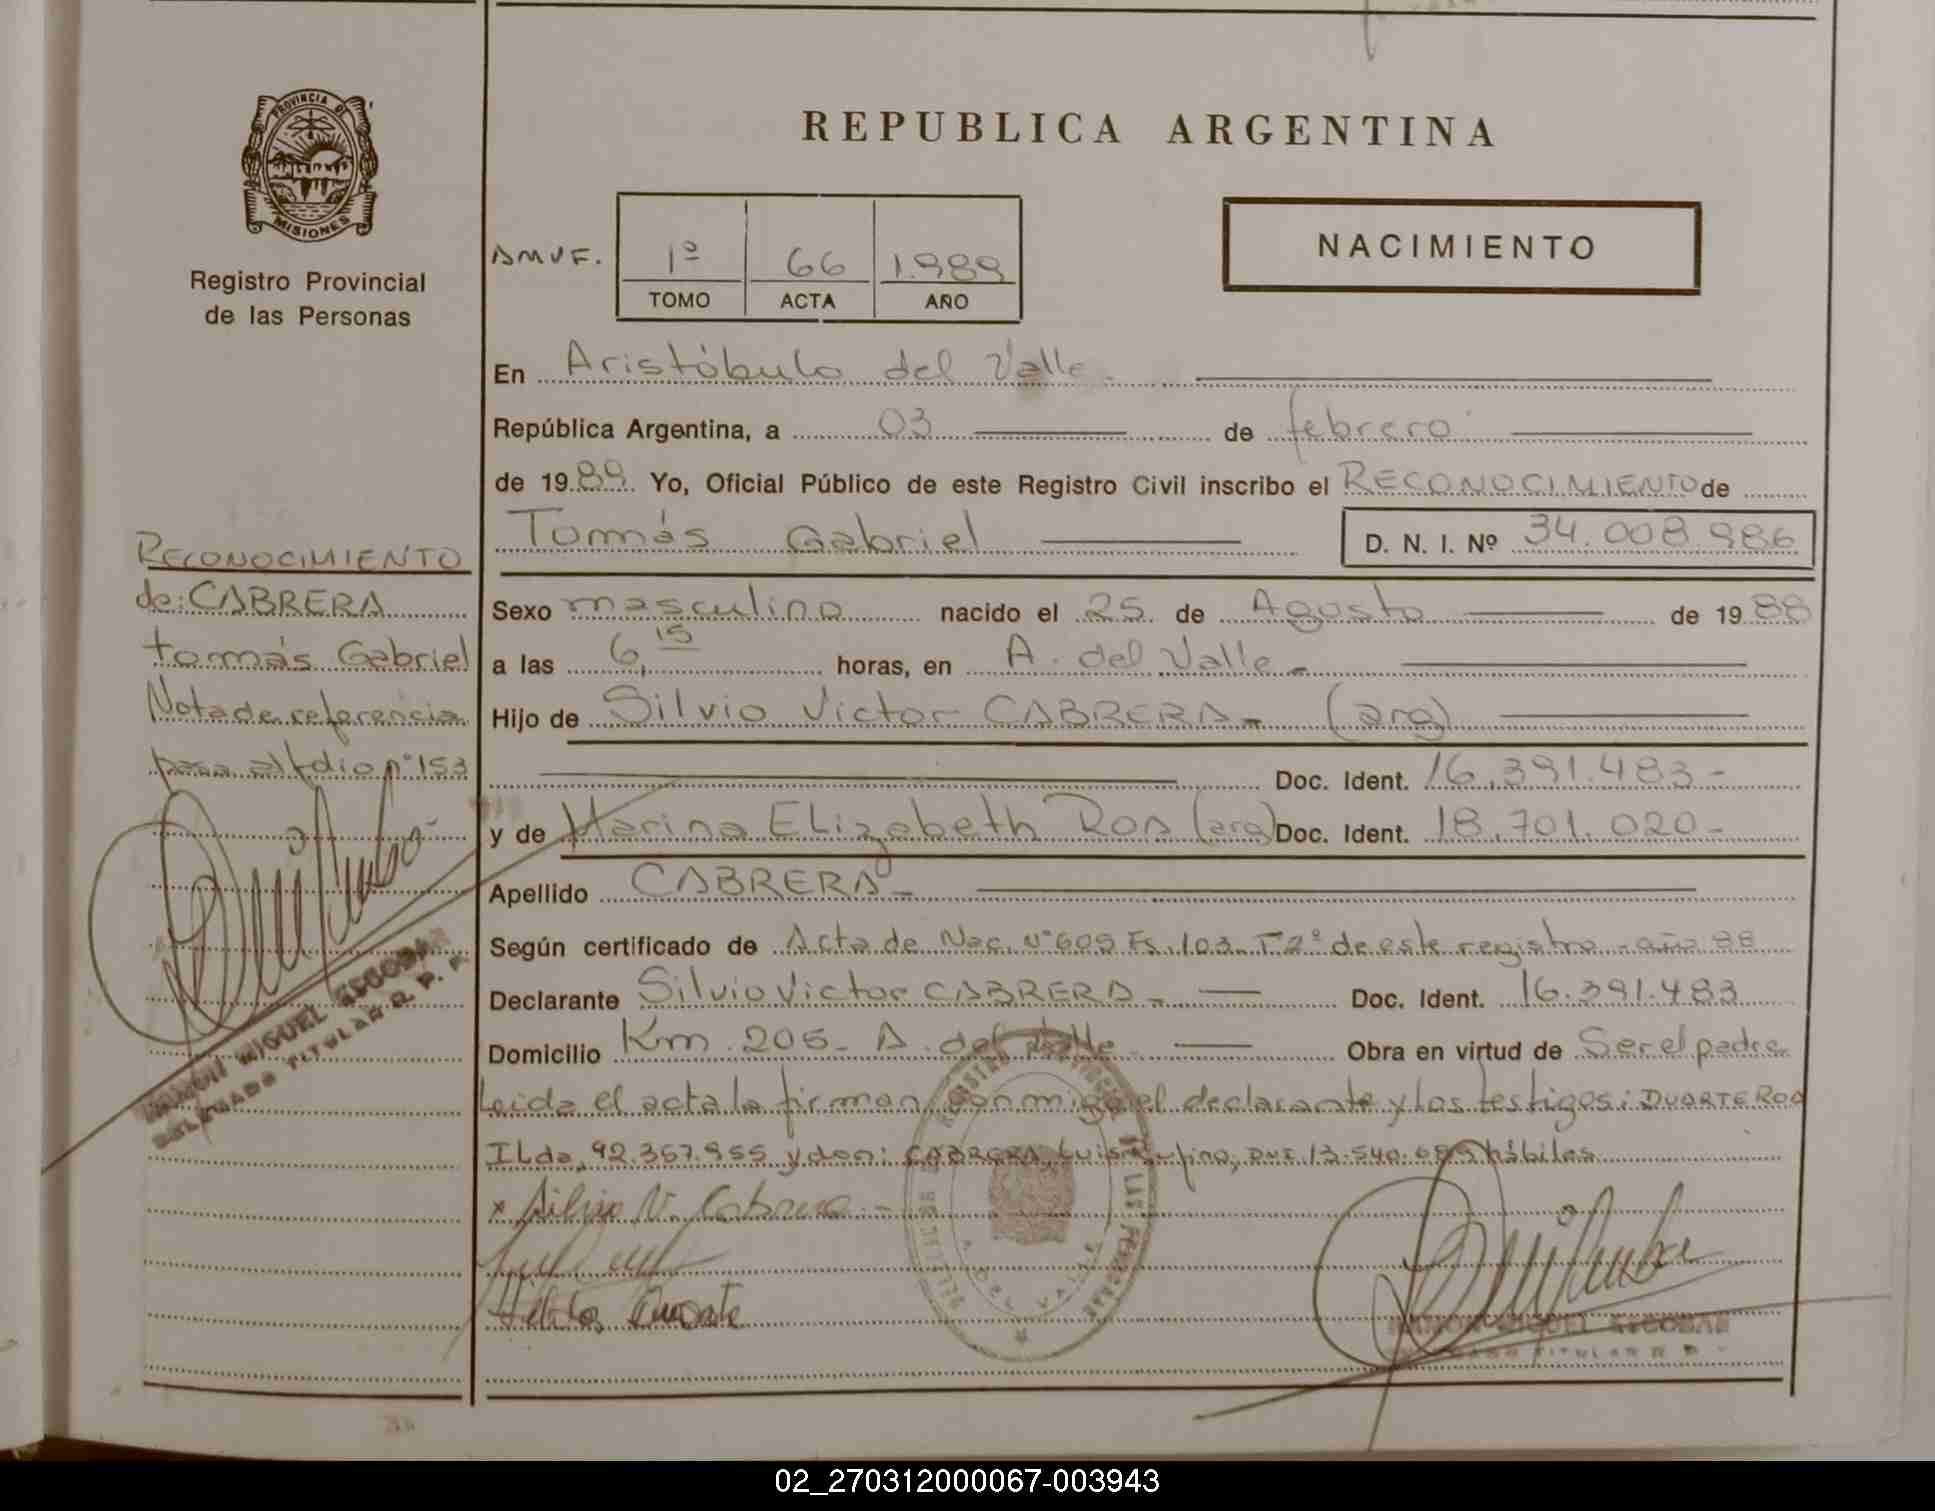 PROVINCIA DE
MISIONES
Registro Provincial
de las Personas
REPUBLICA ARGENTINA
NACIMIENTO
AMVF.
1º 66 1.989
TOMO ACTA AÑO
En Aristóbulo del Valle
República Argentina, a 03 de febrero
de 1989. Yo, Oficial Público de este Registro Civil inscribo el RECONOCIMIENTO de
Tomás Gabriel D. N. I. Nº 34.008.986
Sexo masculino nacido el 25 de Agosto de 1988
a las 6,15 horas, en A. del Valle.-
Hijo de Silvio Victor CABRERA.- (arg)
Doc. Ident. 16.391.483-
y de Marina Elizabeth ROA (arg) Doc. Ident. 18.701.020-
Apellido CABRERA-
Según certificado de Acta de Nac. Nº 609 Fs. 103 T 2º de este registro - año 88
Declarante Silvio Victor CABRERA- Doc. Ident. 16.391.483
Domicilio Km. 205- A. del Valle Obra en virtud de Ser el padre
Leida el acta la firman conmigo el declarante y los testigos: DUARTE ROA
Ilda, 92.357.955 y don: CABRERA, Luis Rufino, DNI 13.540. hábiles
x Silvio V. Cabrera -
Duarte
RECONOCIMIENTO
de: CABRERA
tomás Gabriel
Nota de referencia
pasa al fólio nº 153
RAMON MIGUEL ESCOBAR
DELEGADO TITULAR R. P. P.
RAMON MIGUEL ESCOBAR
DELEGADO TITULAR R. P.
02_270312000067-003943